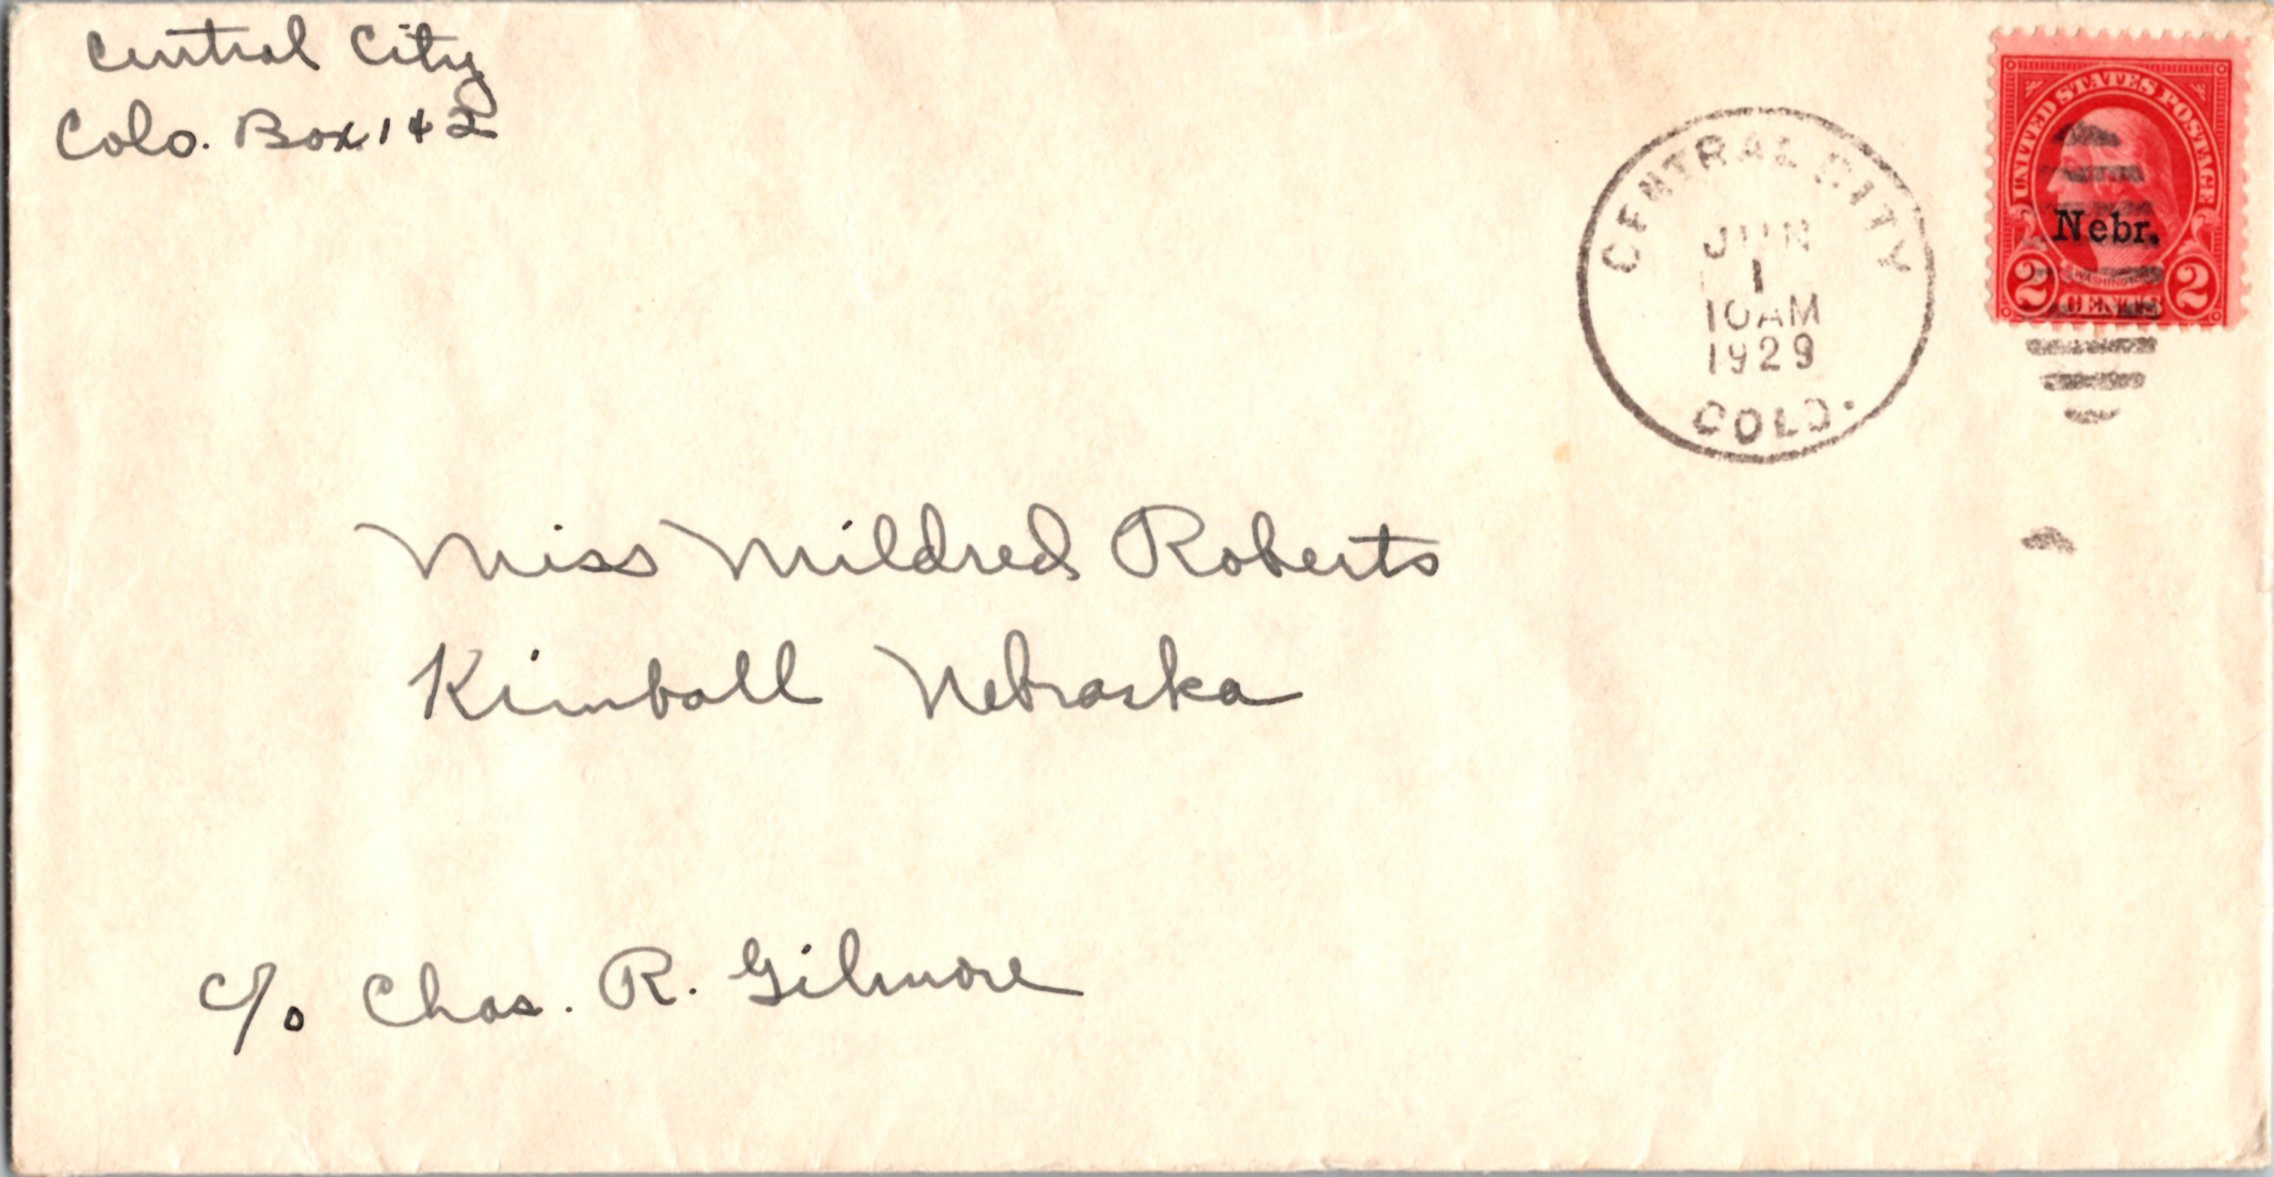 Central City
Colo. Box 142
CENTRAL CITY
JUN
1
10AM
1929
COLO.
UNITED STATES POSTAGE
Nebr.
2 WASHINGTON 2
CENTS
Miss Mildred Roberts
Kimball Nebraska
c/o Chas. R. Gilmore